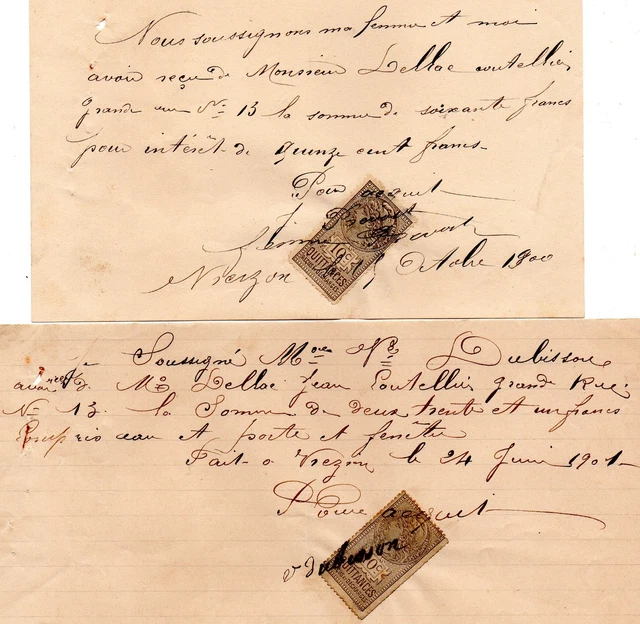 Nous soussignons ma femme et moi
avoir reçu de Monsieur Lellac coutellier
grande rue N° 13 la somme de soixante francs
pour intérêt de quinze cent francs
Pour acquit
Femme
10c
QUITTANCES
Vierzon Octobre 1900
Je Soussigné Mme Ve Dubisson
avoir de Mr Lellac Jean Coutellier grande Rue
N° 13 la Somme de deux trente et un francs
eau et porte et fenêtre
Fait a Vierzon le 24 Juin 1901
Pour acquit
v Dubisson
10c
QUITTANCES